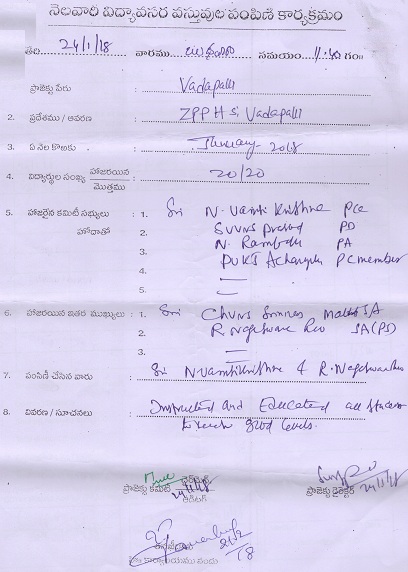 నెలవారి విద్యావసర వస్తువుల పంపిణి కార్యక్రమం
తేది 24/1/18 వారము బుధవారం సమయం 11.40 గం॥
ప్రాజెక్టు పేరు : Vadapalli
2. ప్రదేశము / ఆవరణ : ZPPHS, Vadapalli
3. ఏ నెల కొఱకు : January - 2018
4. విద్యార్థుల సంఖ్య హాజరయిన / మొత్తము : 20/20
5. హాజరైన కమిటీ సభ్యులు : 1. Sri N. Vamti Krishna PCC
హోదాతో 2. SVVNS Prasad PD
3. N. Rambabu PA
4. PVKJ Acharyulu PC member
5. —
6. హాజరయిన ఇతర ముఖ్యులు : 1. Sri ChVNS Srinivas Maths SA
2. R. Nageswara Rao SA (PS)
3. —
7. పంపిణీ చేసిన వారు : Sri N. Vamti Krishna & R. Nageswara Rao
8. వివరణ / సూచనలు : Instructed and Educated all
good levels.
24/1/18
ప్రాజెక్టు కమిటీ ఛైర్మన్
ఆడిటర్
24/1/18
ప్రాజెక్టు డైరెక్టర్
21/2/18